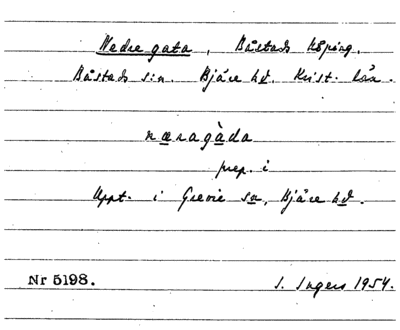 Nedre gata, Båstads köping.
Båstads sn. Bjäre hd. Krist. län.
næragàda
prep. i
Uppt. i Grevie sn, Bjäre hd.
Nr 5198. I. Ingers 1954.